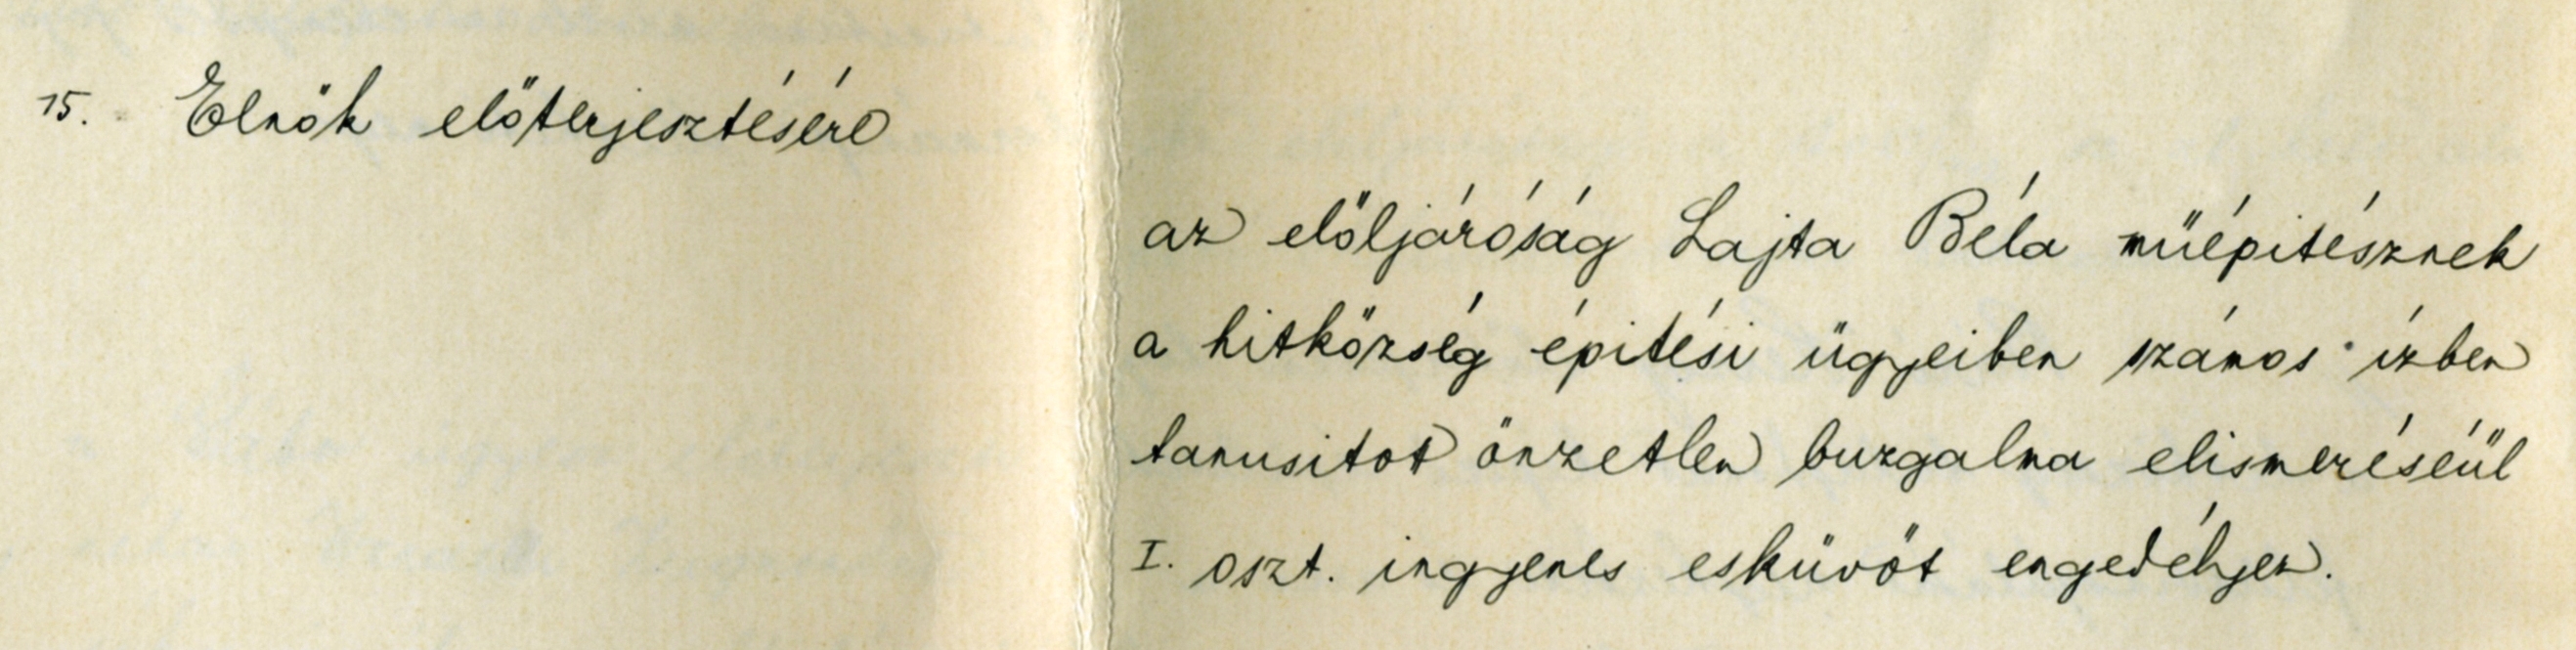 15. Elnök előterjesztésére
az előljáróság Lajta Béla müépitésznek
a hitközség épitési ügyeiben számos izben
tanusitot önzetlen buzgalma elismeréséül
I. oszt. ingyenes esküvőt engedélyez.